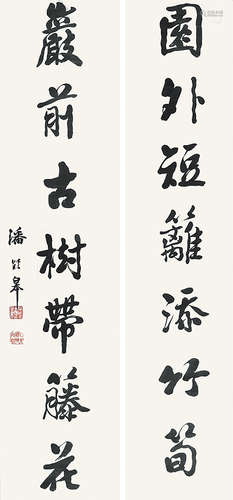 園外短籬添竹筍
巖前古樹帶籐花
潘齡皋